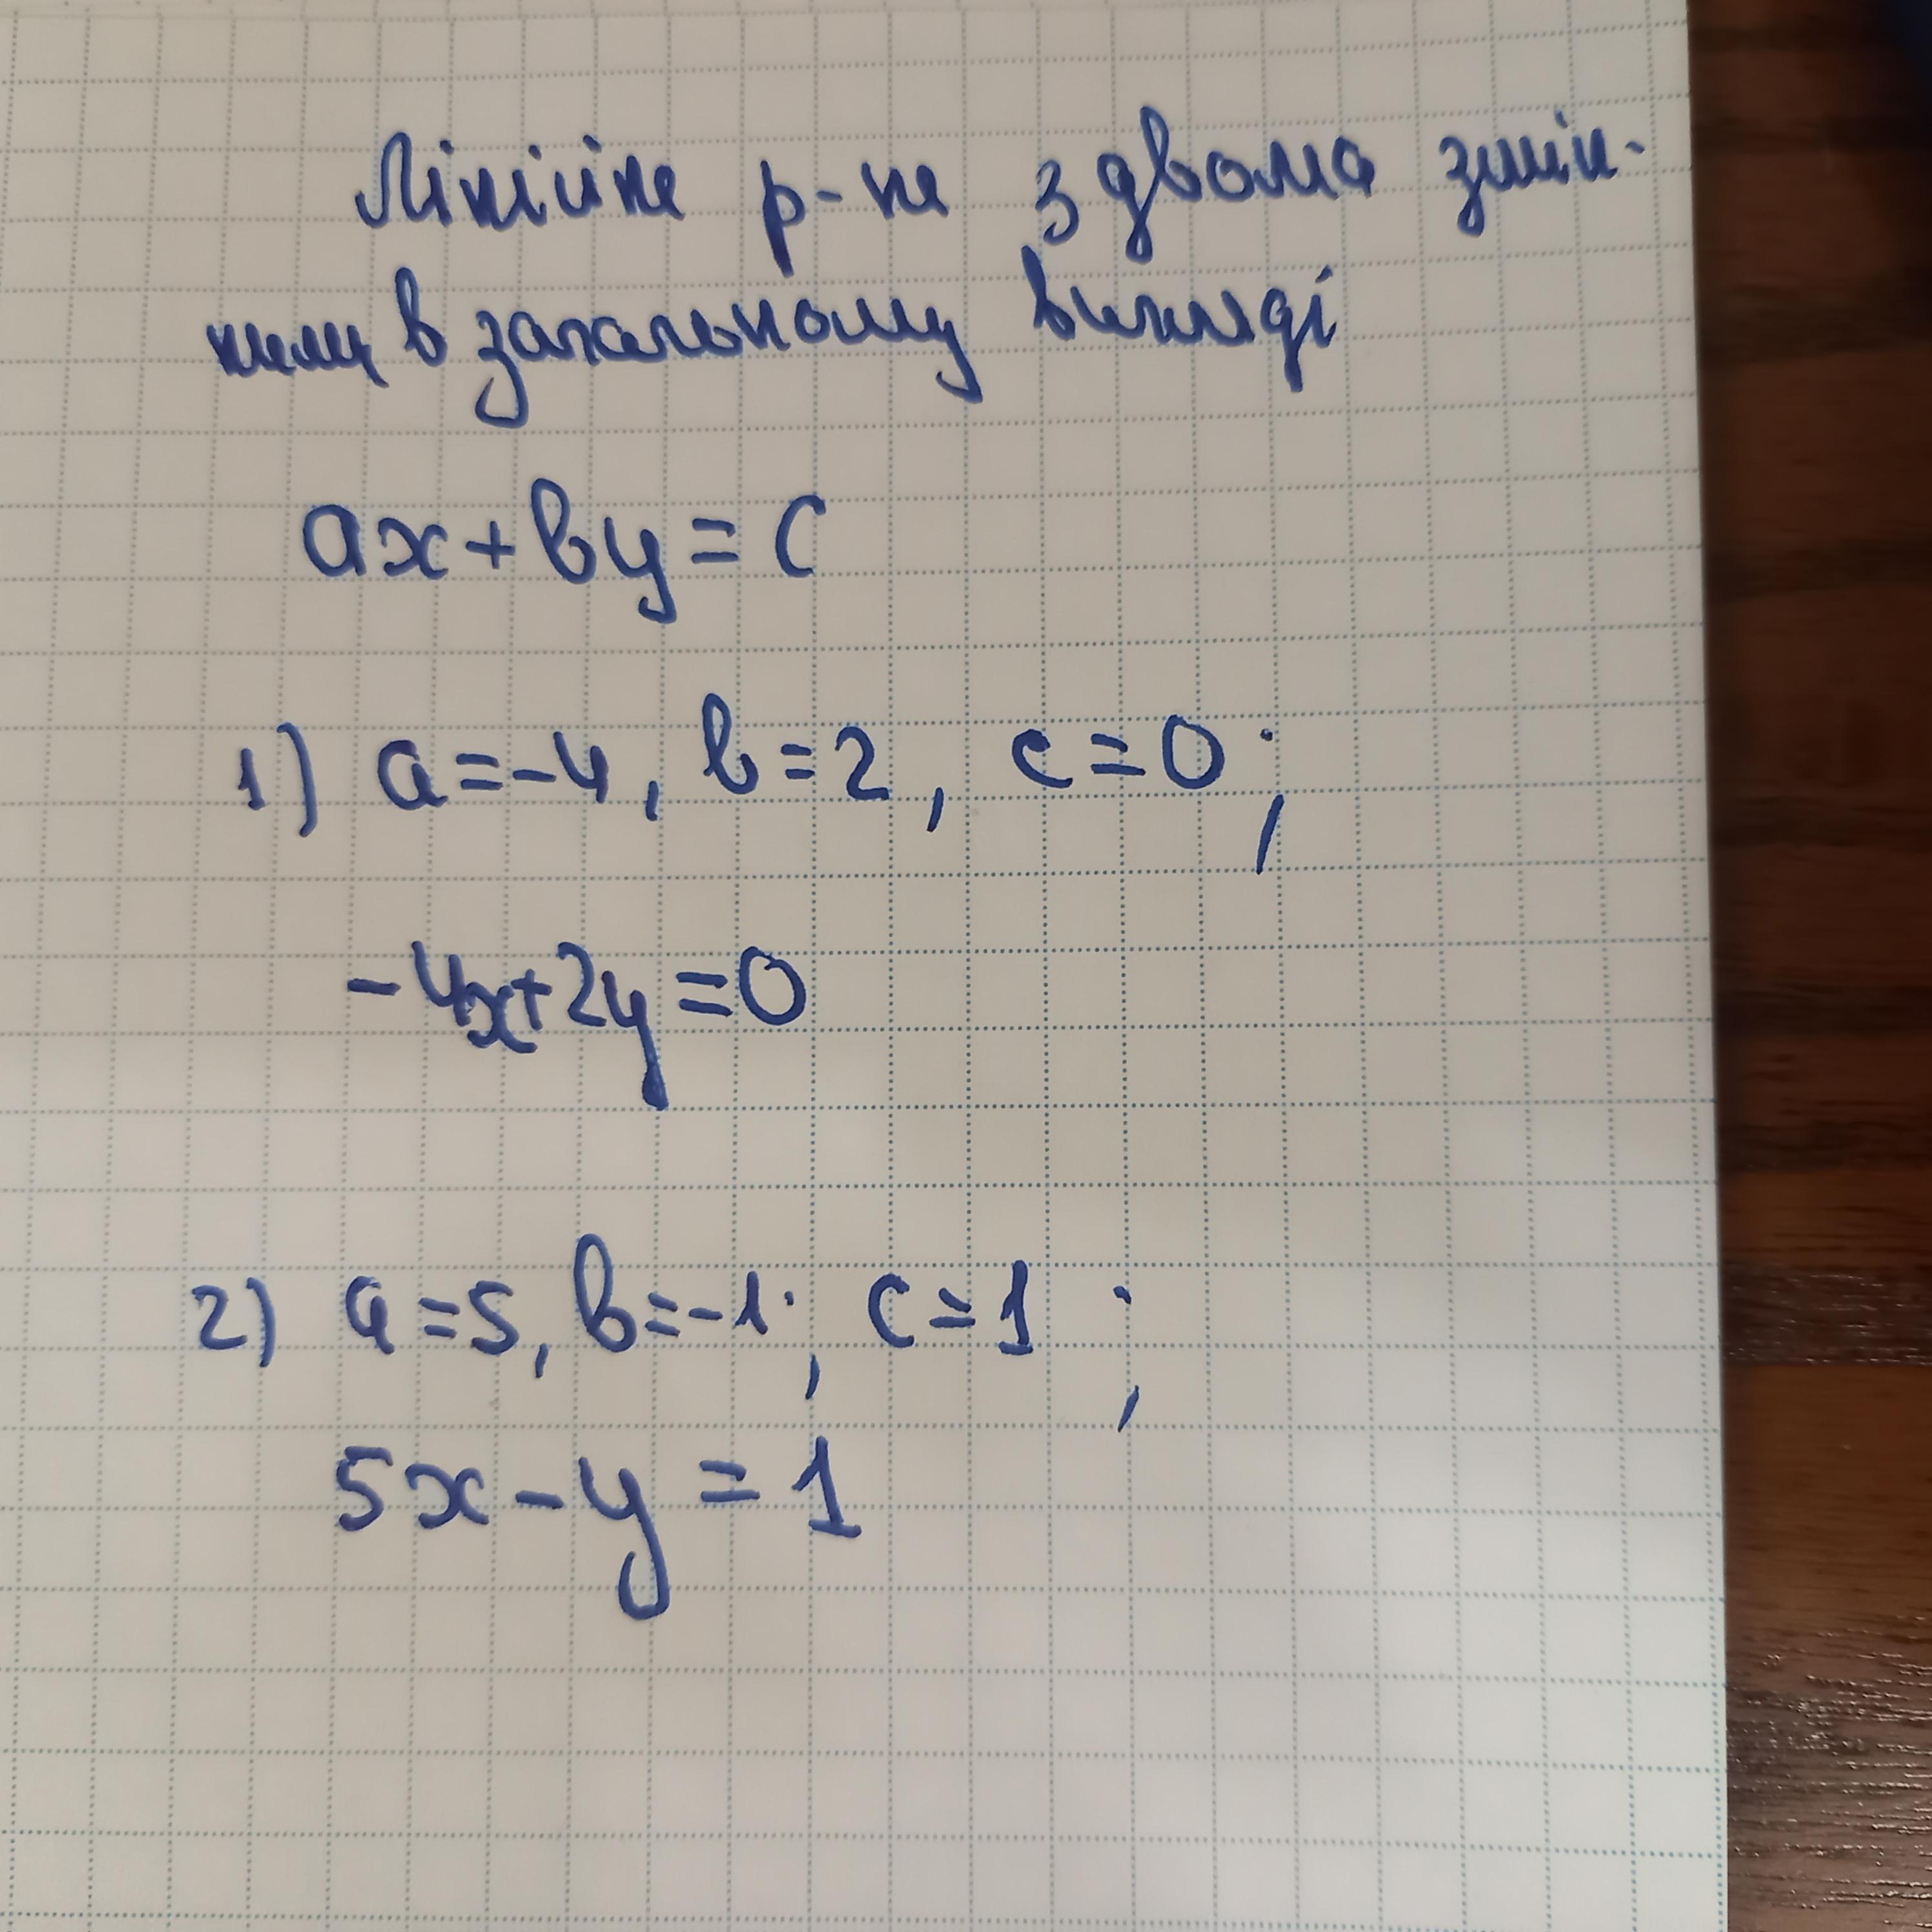 Лінійне р-не з двома змін-
ними в загальному вигляді
ax+by=c
1) a=-4, b=2, c=0;
-4x+2y=0
2) a=5, b=-1; c=1;
5x-y=1